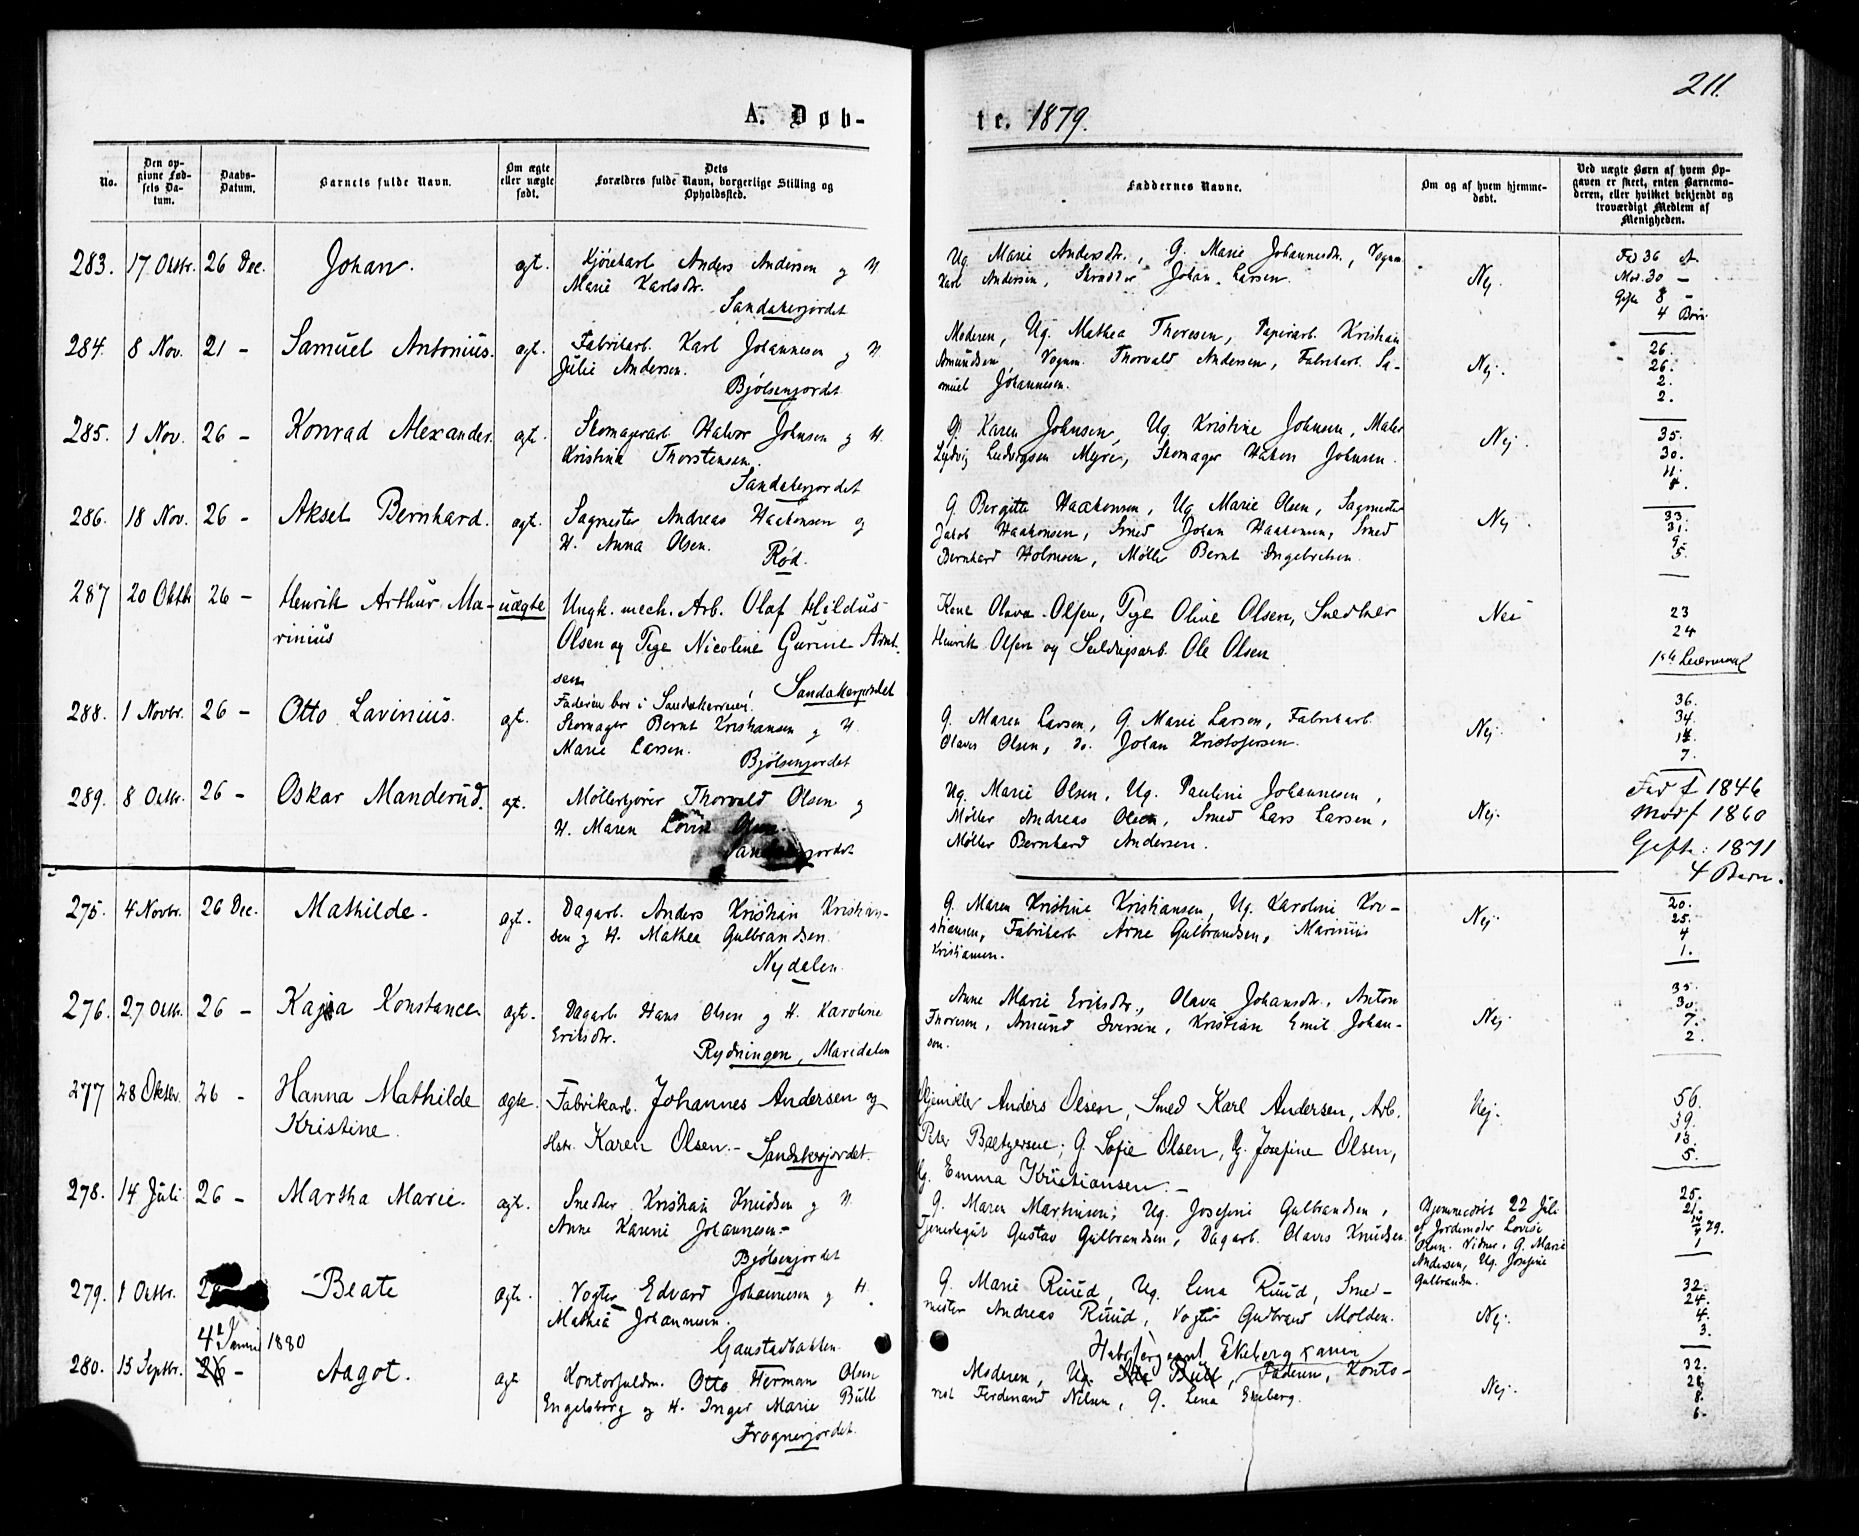 211.
A. Døb-
te. 1879.
No.
Den op-
givne Fød-
sels Da-
tum.
Daabs-
Datum.
Barnets fulde Navn.
Om ægte
eller uægte
født.
Dets
Forældres fulde Navn, borgerlige Stilling og
Opholdssted.
Faddernes Navne.
Om og af hvem hjemme-
døbt.
Ved uægte Børn af hvem Op-
gaven er skeet, enten Barnemo-
deren, eller hvilket bekjendt og
troværdigt Medlem af
Menigheden.
283. 17 Oktbr. 26 Dec. Johan. ægt. Kjørekarl Anders Andersen og H
Marie Karlsdtr.
Sandakerjordet
Ug Marie Andersdtr., G. Marie Johannesdtr., Vognm
Karl Andersen, Skrædder Johan Larsen.
Nej.
Fad 36
Mod. 30 –
Gifte 8 –
4 Børn
284. 8 Nov. 21 – Samuel Antonius. ægt. Fabrikarb. Karl Johannesen og H
Julie Andersen.
Bjølsenjordet
Moderen, Ug. Mathea Thoresen, Papirarb. Kristian
Amundsen, Vognm. Thorvald Andersen, Fabrikarb. Sa-
muel Johannesen.
Nej.
26.
26.
2.
2.
285. 1 Nov. 26 – Konrad Alexander. ægt. Skomagerarb Halvor Johnsen og H.
Kristine Thorstensen.
Sandakerjordet
G. Karen Johnsen, Ug. Kristine Johnsen, Maler
Ludvig Ludvigsen Myre, Skomager Hakon Johnsen.
Nej.
35.
30.
286. 18 Nov. 26 – Aksel Bernhard. ægt. Sagmester Andreas Haakonsen og
H. Anna Olsen.
Rød.
G Bergitte Haakonsen, Ug Marie Olsen, Sagmester
Jakob Haakonsen, Smed Johan Haakonsen, Smed
Bernhard Holmsen, Møller Bernt Ingebretsen.
Nej.
33.
31.
9.
5.
287 20 Oktb 26 – Henrik Arthur Ma-
rinius
uægte Ungk. mech. Arb. Olaf Hildus
Olsen og Pige Nicoline Gurine Arnt-
sen
Sandakerjordet
Faderen bor i Sandakerveien.
Kone Olava Olsen, Pige Oline Olsen, Snedker
Henrik Olsen og Seildugsarb. Ole Olsen
Nei
23
24
1ste Leiermaal
288. 1 Novbr. 26 – Otto Lavinius. ægt. Skomager Bernt Kristiansen og H.
Marie Larsen.
Bjølsenjordet
G. Maren Larsen, G. Marie Larsen, Fabrikarb.
Olaves Olsen, do. Johan Kristofersen.
Nej.
36.
34.
7.
289. 8 Oktbr. 26 – Oskar Manderud. ægt. Møllerkjører Thorvald Olsen og
H. Maren Lovise Olsen.
Sandakerjordet
Ug. Marie Olsen, Ug. Pauline Johannesen,
Møller Andreas Olsen, Smed Lars Larsen,
Møller Bernhard Andersen.
Nej.
Fad f 1846
Mod f 1860
Gifte: 1871
4 Børn.
275. 4 Novbr. 26 Dec. Mathilde. ægt. Dagarb. Anders Kristian Kristian-
sen og H. Mathea Gulbrandsen.
Nydalen.
G. Maren Kristine Kristiansen, Ug. Karoline Kri-
stiansen, Fabrikarb Arne Gulbrandsen, Marinius
Kristiansen.
Nej.
20.
25.
4
1.
276. 27 Oktb. 26 – Kajsa Konstance ægt. Dagarb Hans Olsen og H. Karoline
Eriksdtr.
Rydningen, Maridalen
Anne Marie Eriksdtr., Olava Johansdtr., Anton
Thoresen, Amund Iversen, Kristian Emil Johan-
sen.
Nej.
35.
30.
7.
2.
277 28 Oktbr. 26 – Hanna Mathilde
Kristine.
ægte. Fabrikarb. Johannes Andersen og
Hstr. Karen Olsen. – Sandakerjordet.
Anders Olsen, Smed Karl Andersen, Arb.
Peter Bastgersen; G. Sofie Olsen, Ug. Josefine Olsen,
Ug. Emma Kristiansen. –
Nej.
56.
39.
13.
5.
278. 14 Juli 26 – Martha Marie. ægt. Snedker Kristian Knudsen og H.
Anne Karine Johannesen.
Bjølsenjordet
G. Maren Martinsen; Ug. Josefine Gulbrandsen,
Tjenestegut Gustav Gulbrandsen, Dagarb. Olaves Knudsen
Hjemmedøbt 22 Juli
af Jordemoder Lovise
Olsen. Vidner. G. Marie
Andersen, Ug. Josefine
Gulbrandsen.
25.
21.
79.
1
279. 1 Oktbr. Beate ægt. Vogter Edvard Johannesen og H.
Mathea Johannesen.
Gaustadbakken.
G. Marie Ruud, Ug. Lena Ruud, Smed-
mester Andreas Ruud, Vogter Gudbrand Molden.
Nej.
32.
24.
4.
3.
4de Januar 1880
280. 15 Septbr. 26 – Aagot. ægt Kontorfuldm. Otto Herman Olsen
Engelsborg og H. Inger Marie Bull
Frognerjordet.
Ekeberg
Moderen, Ug. Ida Bull, Faderen, Konto-
rist Ferdinand Nilsen, G. Lena Ekeberg.
Nej.
32.
28.
8.
6.